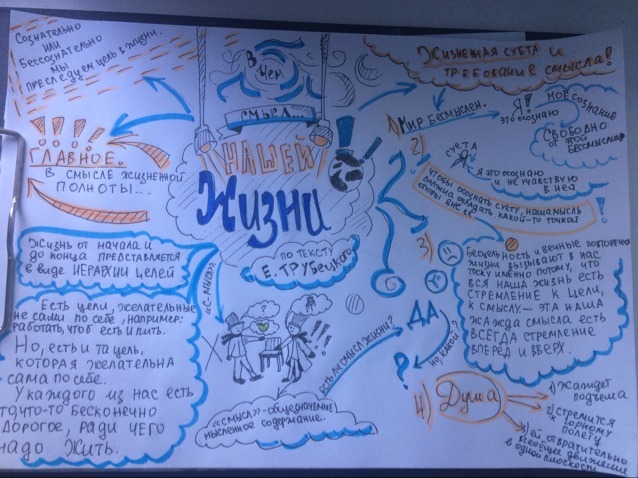 СОЗНАТЕЛЬНО
ИЛИ
БЕССОЗНАТЕЛЬНО
МЫ
ПРЕСЛЕДУЕМ ЦЕЛЬ В ЖИЗНИ.
ГЛАВНОЕ.
В СМЫСЛЕ ЖИЗНЕННОЙ
ПОЛНОТЫ...
Жизнь от начала и
до конца представляется
в виде ИЕРАРХИИ ЦЕЛЕЙ
Есть цели, желательные
не сами по себе, например:
работать, чтоб есть и пить.
Но, есть и та цель,
которая желательна
сама по себе.
У каждого из нас есть
что-то бесконечно
дорогое, ради чего
надо жить.
В
ЧЕМ
СМЫСЛ...
НАШЕЙ
Жизни
ПО ТЕКСТУ
Е. ТРУБЕЦКОГО
«СМЫСЛ»
«СМЫСЛ» - общезначимое
мысленное содержание.
ЕСТЬ ЛИ СМЫСЛ ЖИЗНИ?
ДА
НО, КАКОЙ?
?
ЖИЗНЕННАЯ СУЕТА И
ТРЕБОВАНИЕ СМЫСЛА!
1) Мир бессмыслен.
Я!
ЭТО ОСОЗНАЮ
МОЁ СОЗНАНИЕ
СВОБОДНО
ОТ ТОЙ
БЕССМЫСЛИЦЫ
2)
СУЕТА
Я ЭТО ОСОЗНАЮ
И НЕ УЧАСТВУЮ
В НЕЙ
ЧТОБЫ ОСОЗНАТЬ СУЕТУ, НАША МЫСЛЬ
ДОЛЖНА ОБЛАДАТЬ КАКОЙ-ТО ТОЧКОЙ
ОПОРЫ ВНЕ ЕЁ
3)
Бесцельность и вечные повторения
жизни вызывают в нас
тоску именно потому, что
вся наша жизнь есть
СТРЕМЛЕНИЕ К ЦЕЛИ,
К СМЫСЛУ - ЭТА НАША
ЖАЖДА СМЫСЛА ЕСТЬ
ВСЕГДА СТРЕМЛЕНИЕ
ВПЕРЁД И ВВЕРХ.
4) Душа
1) ЖАЖДЕТ
ПОДЪЕМА
2) СТРЕМИТСЯ
К ГОРНОМУ
ПОЛЁТУ
3) ЕЙ ОТВРАТИТЕЛЬНО
ВСЕОБЩЕЕ ДВИЖЕНИЕ
В ОДНОЙ ПЛОСКОСТИ